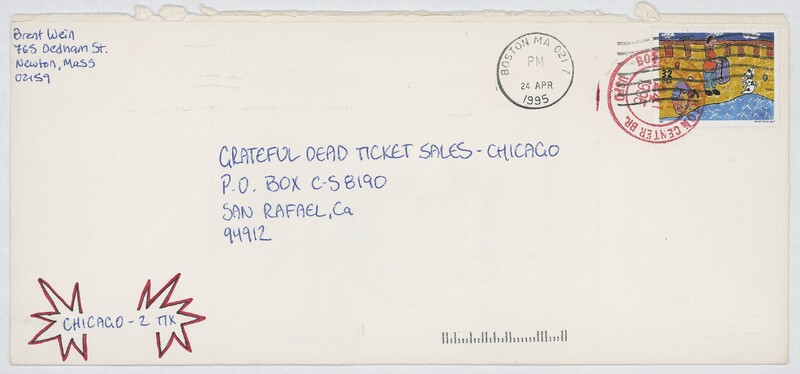 Brent Wein
765 Dedham St.
Newton, Mass
02159
BOSTON MA 021 7
PM
24 APR
1995
32
USA
CENTER BR.
GRATEFUL DEAD TICKET SALES - CHICAGO
P.O. BOX C-S8190
SAN RAFAEL, Ca
94912
CHICAGO - 2 TIX